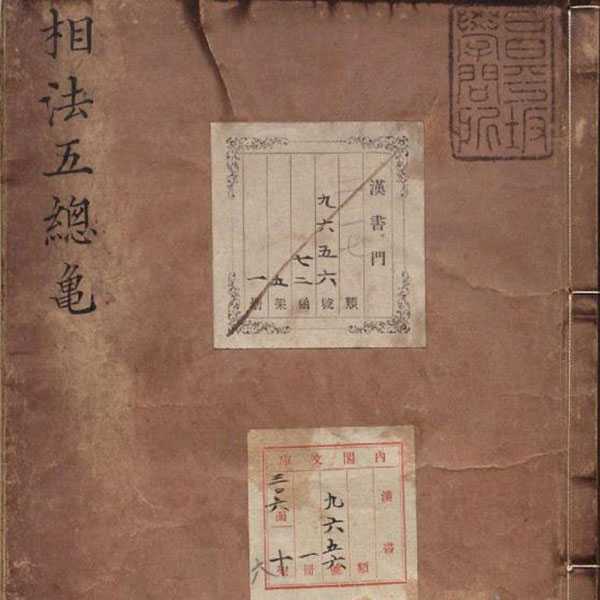 昌平坂
學問所
相法五總亀
漢書門
類
九六五六號
七二函
五架
一冊
內閣文庫
漢書
類
九六五六號
一冊
三〇六函
十架
六